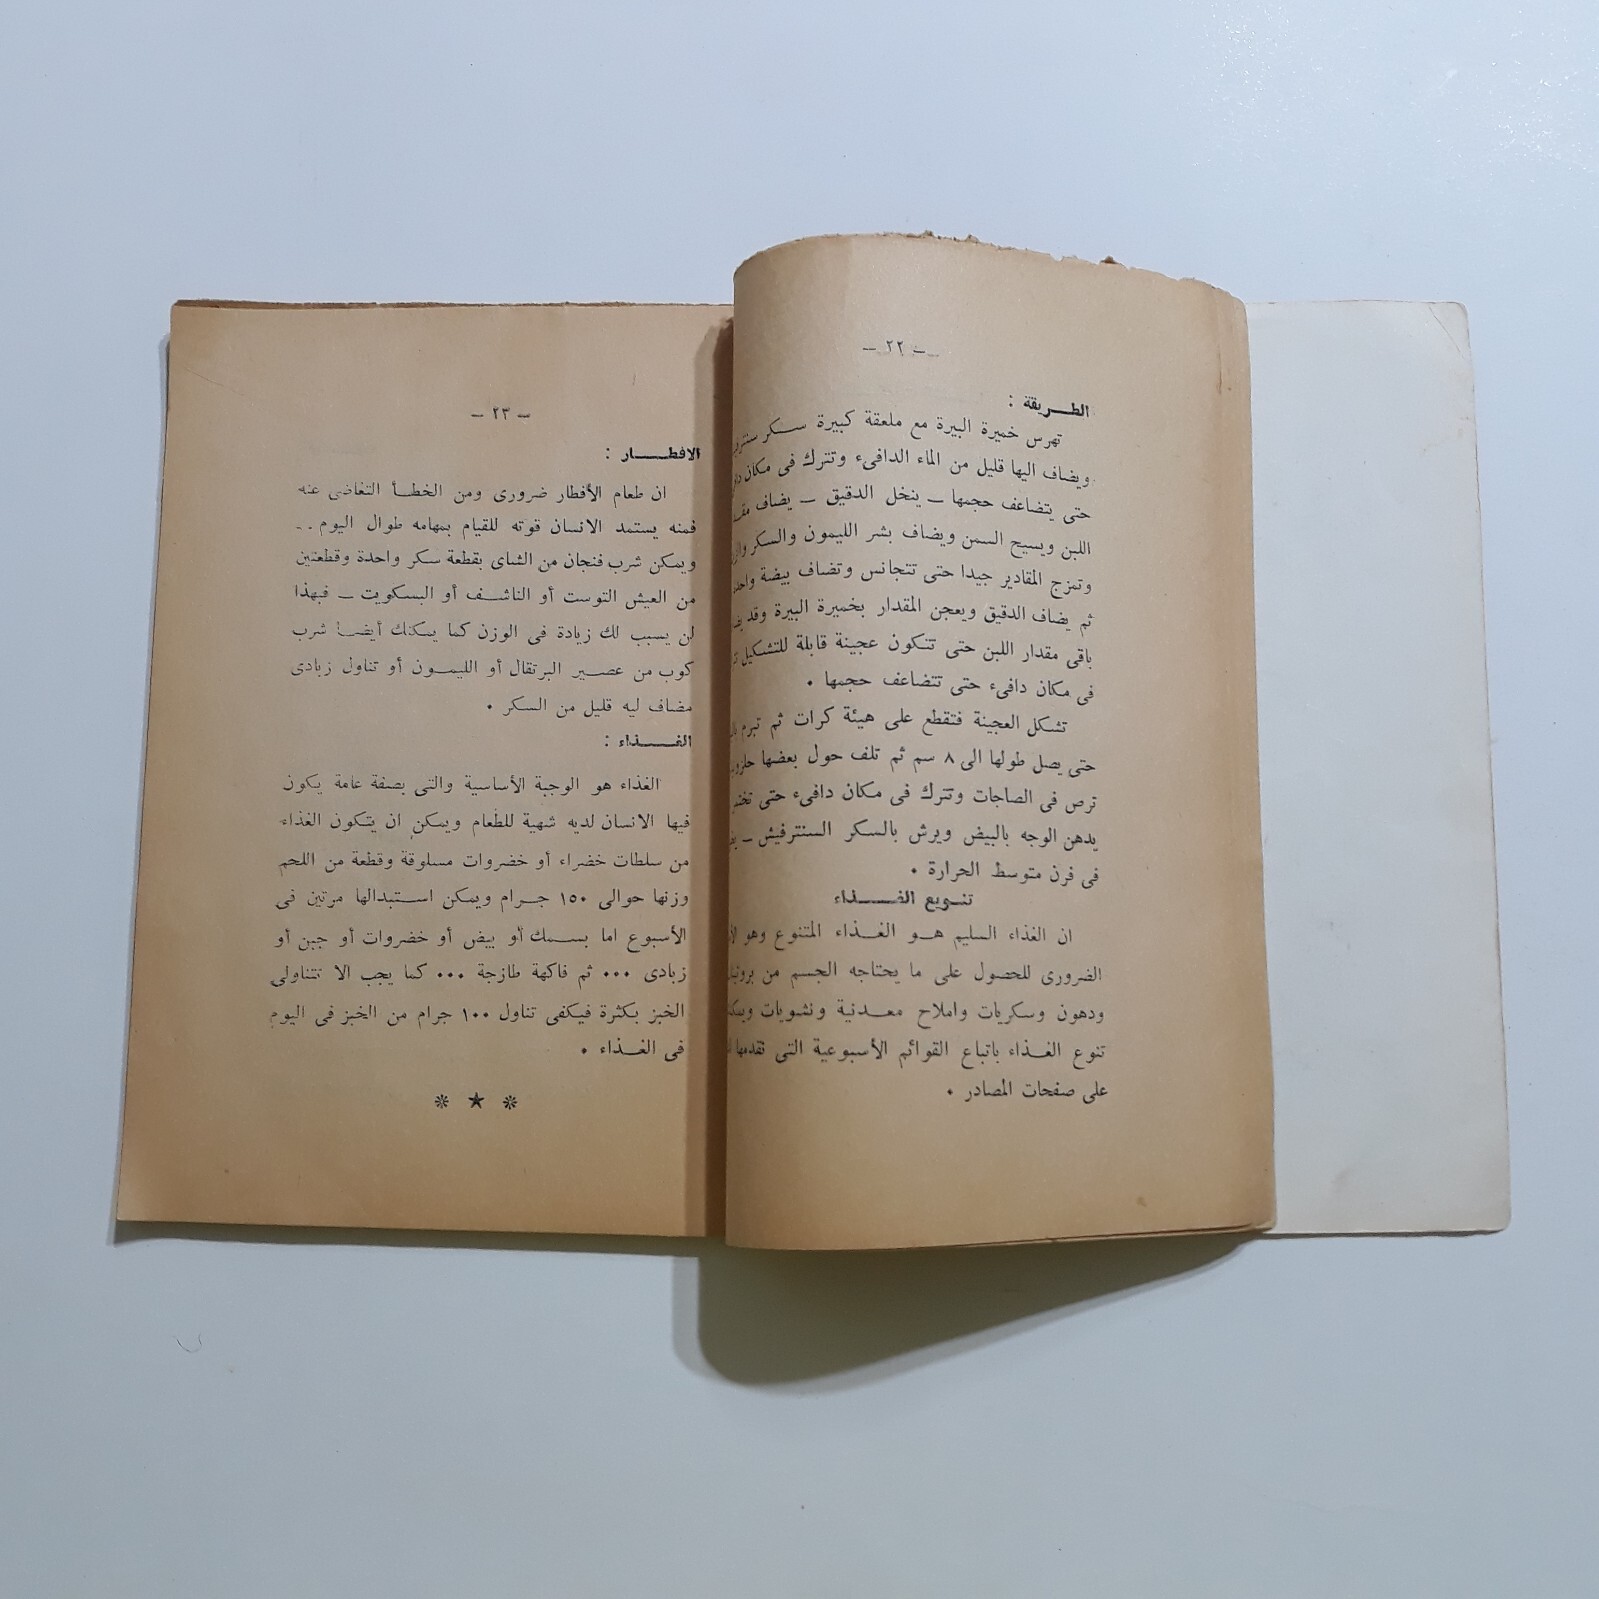 ـ ٢٢ ـ
الطريقة :
تهرس خميرة البيرة مع ملعقة كبيرة سكر
ويضاف اليها قليل من الماء الدافىء وتترك فى مكان
حتى يتضاعف حجمها ـ ينخل الدقيق ـ يضاف
اللبن ويسيح السمن ويضاف بشر الليمون والسكر
وتمزج المقادير جيدا حتى تتجانس وتضاف بيضة
ثم يضاف الدقيق ويعجن المقدار بخميرة البيرة وقد
باقى مقدار اللبن حتى تتكون عجينة قابلة للتشكيل
فى مكان دافىء حتى تتضاعف حجمها •
تشكل العجينة فتقطع على هيئة كرات ثم تبرم
حتى يصل طولها الى ٨ سم ثم تلف حول بعضها
ترص فى الصاجات وتترك فى مكان دافىء حتى
يدهن الوجه بالبيض ويرش بالسكر السنترفيش ـ
فى فرن متوسط الحرارة •
تنويع الغذاء
ان الغذاء السليم هو الغذاء المتنوع وهو
الضرورى للحصول على ما يحتاجه الجسم من
ودهون وسكريات واملاح معدنية ونشويات
تنوع الغذاء باتباع القوائم الأسبوعية التى تقدمها
على صفحات المصادر •
ـ ٢٣ ـ
الافطار :
ان طعام الأفطار ضرورى ومن الخطأ التغاضى عنه
فمنه يستمد الانسان قوته للقيام بمهامه طوال اليوم ..
ويمكن شرب فنجان من الشاى بقطعة سكر واحدة وقطعتين
من العيش التوست أو الناشف أو البسكويت ـ فبهذا
لن يسبب لك زيادة فى الوزن كما يمكنك أيضا شرب
كوب من عصير البرتقال أو الليمون أو تناول زبادى
مضاف ليه قليل من السكر •
الغذاء :
الغذاء هو الوجبة الأساسية والتى بصفة عامة يكون
فيها الانسان لديه شهية للطعام ويمكن ان يتكون الغذاء
من سلطات خضراء أو خضروات مسلوقة وقطعة من اللحم
وزنها حوالى ١٥٠ جرام ويمكن استبدالها مرتين فى
الأسبوع اما بسمك أو بيض أو خضروات أو جبن أو
زبادى ... ثم فاكهة طازجة ... كما يجب الا تتناولى
الخبز بكثرة فيكفى تناول ١٠٠ جرام من الخبز فى اليوم
فى الغذاء •